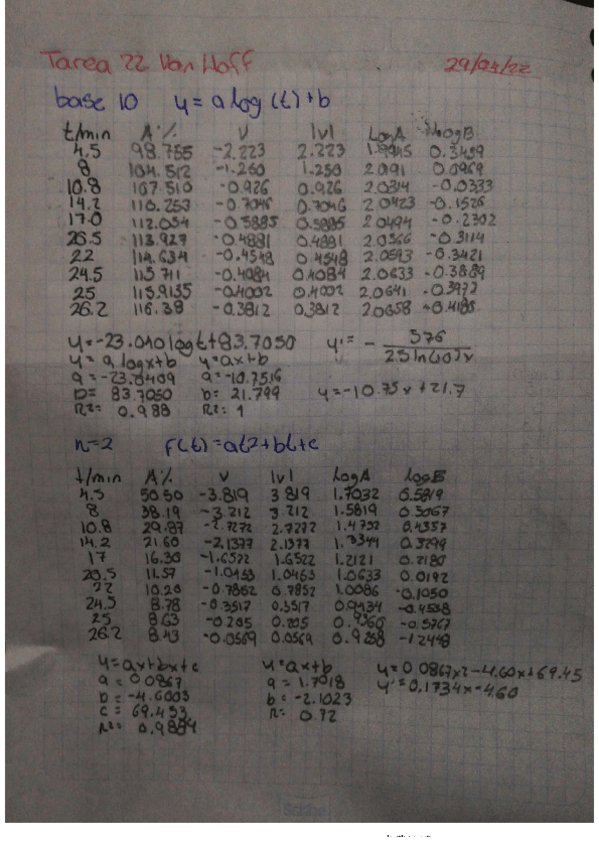 Tarea 22 Van Hoff 29/04/22
base 10 y = a log (t) + b
t/min A% V |v| LogA LogB
4.5 98.755 -2.223 2.223 1.9945 0.3459
8 104.512 -1.250 1.250 2.0191 0.0969
10.8 107.510 -0.926 0.926 2.0314 -0.0333
14.2 110.253 -0.7046 0.7046 2.0423 -0.1526
17.0 112.054 -0.5885 0.5885 2.0494 -0.2302
26.5 113.927 -0.4881 0.4881 2.0566 -0.3114
22 114.634 -0.4548 0.4548 2.0593 -0.3421
24.5 115.711 -0.4084 0.4084 2.0633 -0.3889
25 115.9135 -0.4002 0.4002 2.0641 -0.3972
26.2 116.38 -0.3812 0.3812 2.0658 -0.4188
y = -23.040 log t + 83.7050 y' = - 576 / 25 ln(10)x
y = a log x + b y = ax + b
a = -23.0409 a = -10.7516
b = 83.7050 b = 21.799 y = -10.75x + 21.7
R² = 0.988 R² = 1
n=2 f(t) = at2 + bt + c
t/min A% V |v| LogA LogB
4.5 50.50 -3.819 3.819 1.7032 0.5819
8 38.19 -3.212 3.212 1.5819 0.5067
10.8 29.87 -2.7272 2.7272 1.4752 0.4357
14.2 21.60 -2.1377 2.1377 1.3344 0.3299
17 16.30 -1.6522 1.6522 1.2121 0.2180
20.5 11.57 -1.0453 1.0453 1.0633 0.0192
22 10.20 -0.7852 0.7852 1.0086 -0.1050
24.5 8.78 -0.3517 0.3517 0.9434 -0.4538
25 8.63 -0.205 0.205 0.9360 -0.5767
26.2 8.43 -0.0569 0.0569 0.9258 -1.2448
y = ax + bx + c y = ax + b y = 0.0867x2 - 4.60x + 69.45
a = 0.0867 a = 1.7018 y' = 0.1734x - 4.60
b = -4.6003 b = -2.1023
c = 69.453 R = 0.72
R² = 0.9884
Scribe